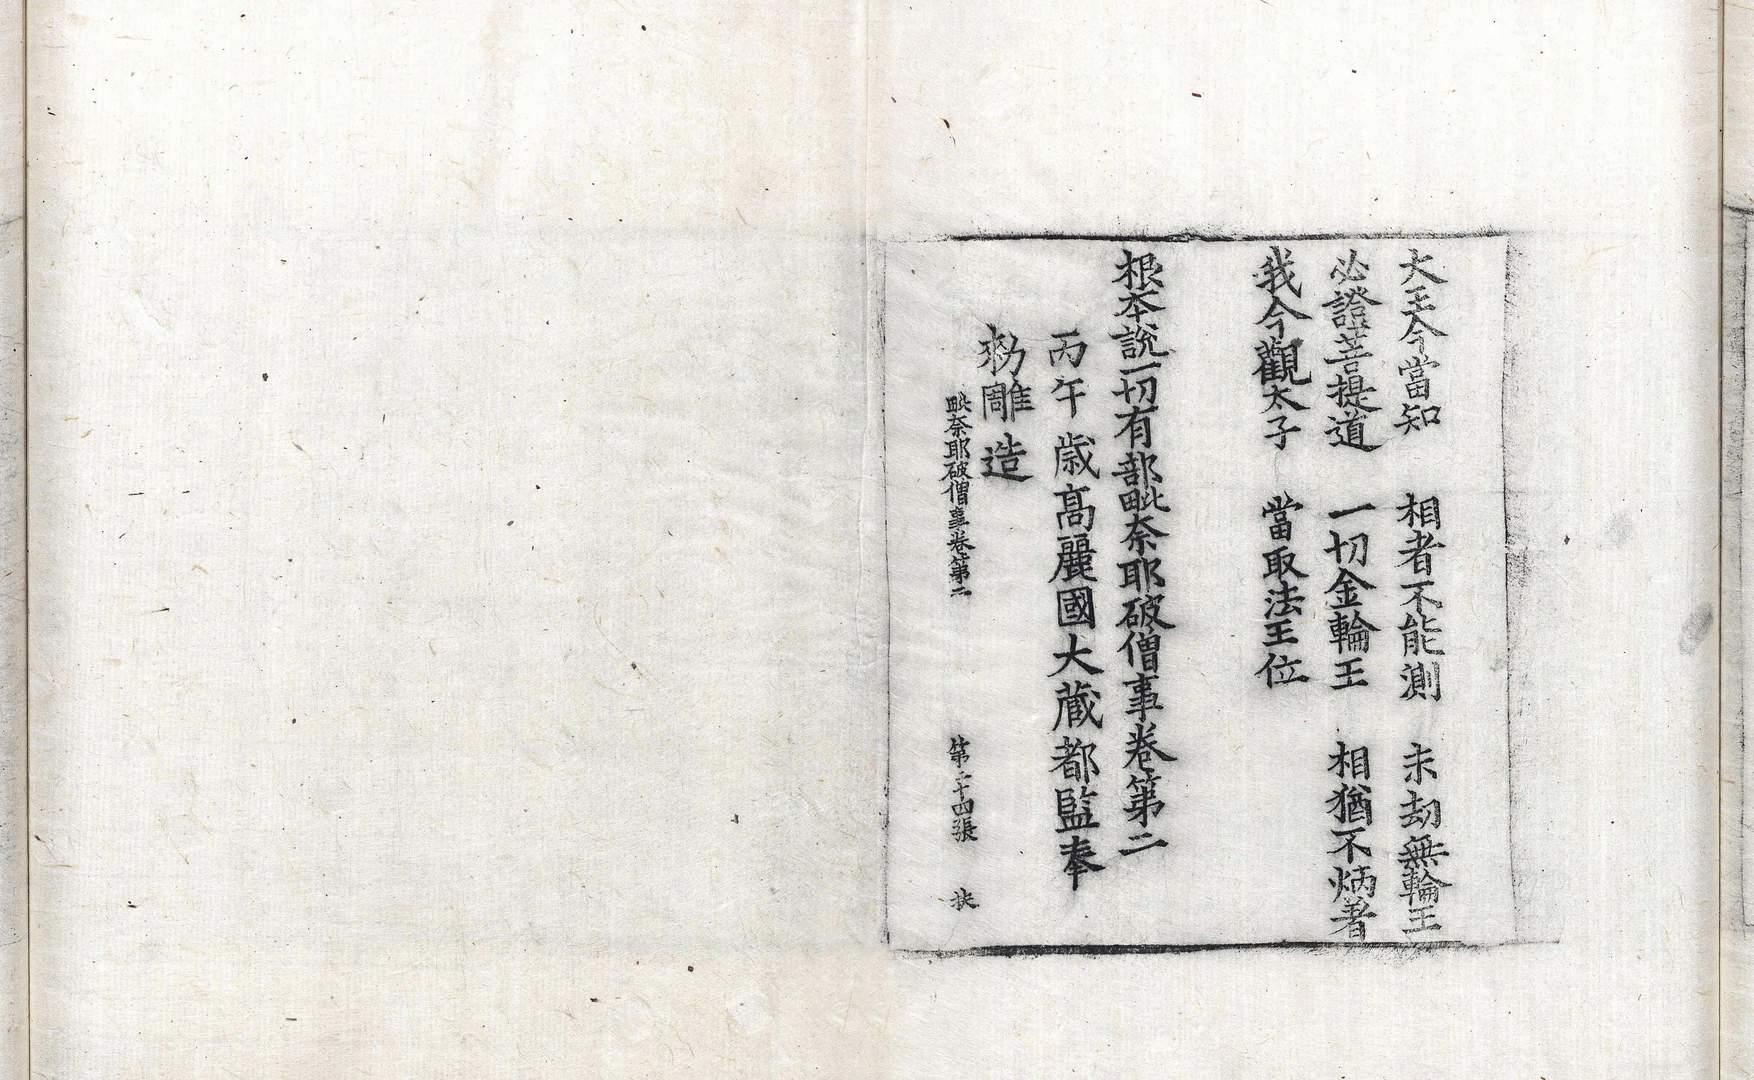 大王今當知 相者不能測 末劫無輪王
必證菩提道 一切金輪王 相猶不炳著
我今觀太子 當取法王位
根本說一切有部毗奈耶破僧事卷第二
丙午歲高麗國大藏都監奉
勑雕造
毗奈耶破僧事卷第二 第二十四張 挾